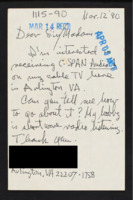 1115-90 Nov. 12 '90
MAR 14 1990
Dear Sir/Madam:
I'm interested in
receiving C-SPAN Audio
on my cable TV here
in Arlington VA.
Can you tell me how
to go about it? My hobby
is shortwave radio listening
Thank you.
Arlington, VA 22207-1758